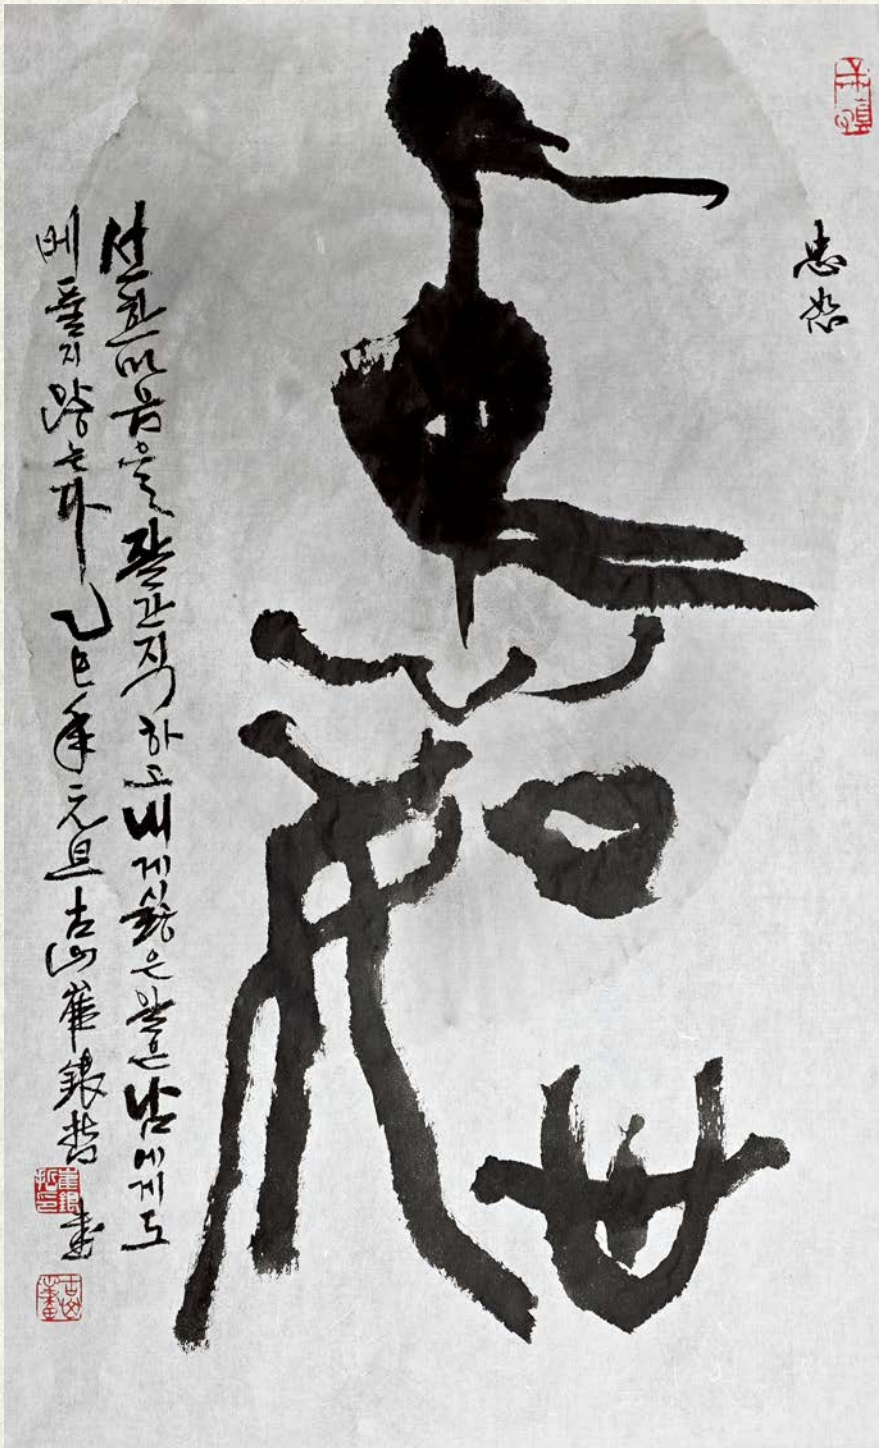 忠恕
忠恕
선한마음을 잘간직하고 내게싫은 일은 남에게도
베풀지않는다 乙巳年元旦 古山 崔銀哲 書
崔銀哲印